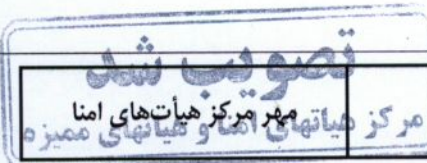 تصویب شد
مهر مرکز هیأت‌های امنا
مرکز هیاتهای امنا و هیاتهای ممیزه